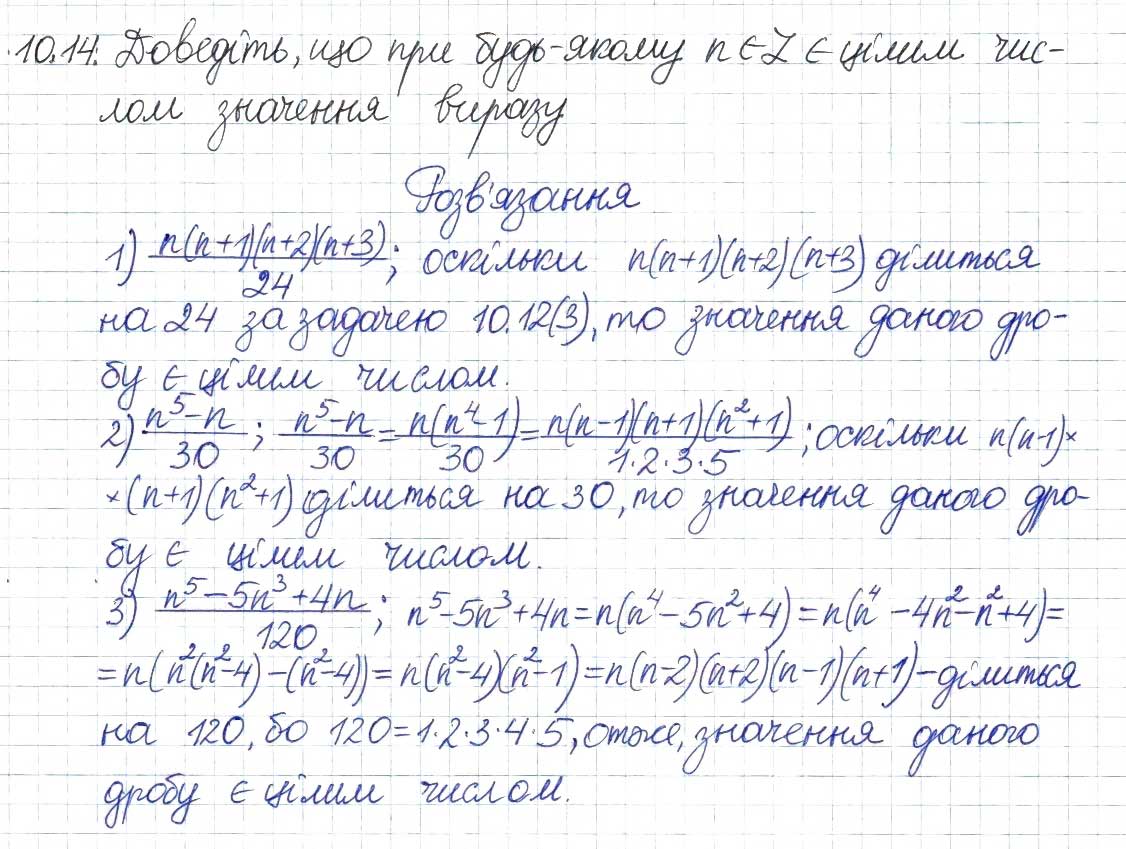 10.14. Доведіть, що при будь-якому n∈Z є цілим чис-
лом значення виразу
Розв'язання
1) n(n+1)(n+2)(n+3)/24; оскільки n(n+1)(n+2)(n+3) ділиться
на 24 за задачею 10.12(3), то значення даного дро-
бу є цілим числом.
2) n⁵-n/30; n⁵-n/30 = n(n⁴-1)/30 = n(n-1)(n+1)(n²+1)/1·2·3·5; оскільки n(n-1)×
×(n+1)(n²+1) ділиться на 30, то значення даного дро-
бу є цілим числом.
3) n⁵-5n³+4n/120; n⁵-5n³+4n=n(n⁴-5n²+4)=n(n⁴-4n²-n²+4)=
=n(n²(n²-4)-(n²-4))=n(n²-4)(n²-1)=n(n-2)(n+2)(n-1)(n+1)-ділиться
на 120, бо 120=1·2·3·4·5, отже, значення даного
дробу є цілим числом.